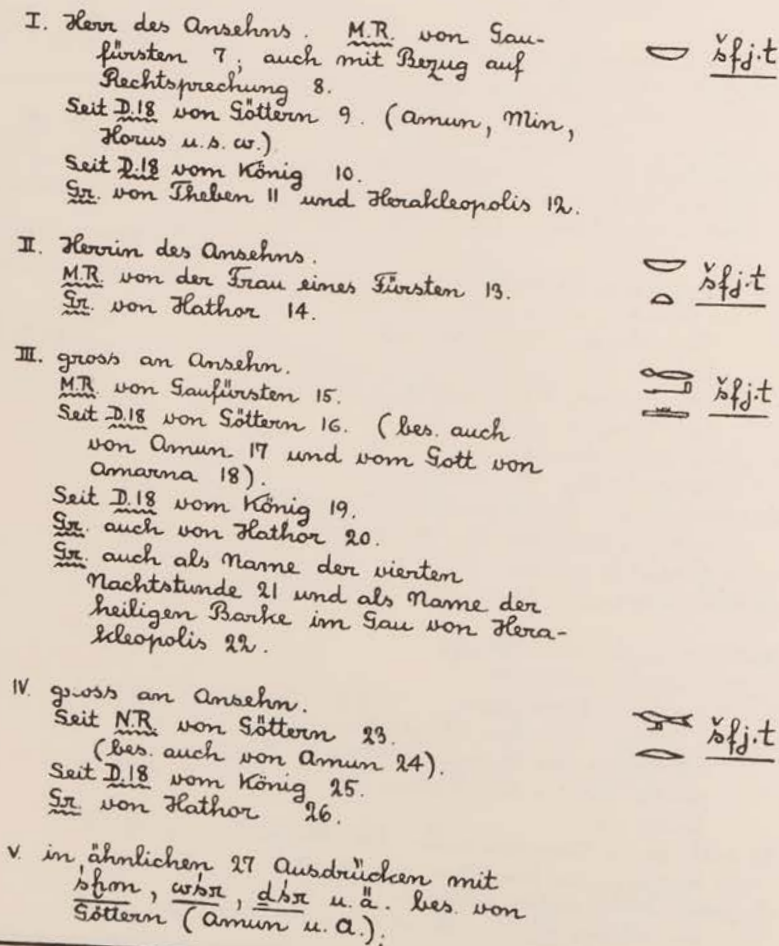 I. Herr des Ansehns. M.R. von Gau- šfj.t
fürsten 7; auch mit Bezug auf
Rechtsprechung 8.
Seit D.18 von Göttern 9. (Amun, Min,
Horus u.s.w.)
Seit D.18 vom König 10.
Gr. von Theben 11 und Herakleopolis 12.
II. Herrin des Ansehns. šfj.t
M.R. von der Frau eines Fürsten 13.
Gr. von Hathor 14.
III. gross an Ansehn. šfj.t
M.R. von Gaufürsten 15.
Seit D.18 von Göttern 16. (bes. auch
von Amun 17 und vom Gott von
Amarna 18).
Seit D.18 vom König 19.
Gr. auch von Hathor 20.
Gr. auch als Name der vierten
Nachtstunde 21 und als Name der
heiligen Barke im Gau von Hera-
kleopolis 22.
IV. gross an Ansehn. šfj.t
Seit N.R. von Göttern 23.
(bes. auch von Amun 24).
Seit D.18 vom König 25.
Gr. von Hathor 26.
V. in ähnlichen 27 Ausdrücken mit
u.ä. bes. von
Göttern (Amun u. a.).